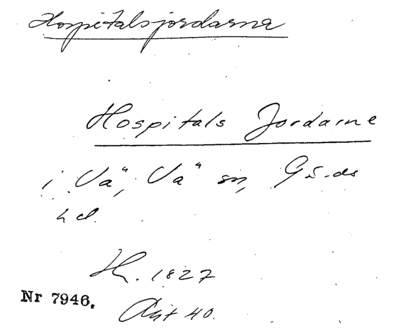 Hospitalsjordarna
Hospitals Jordarne
i "Vä", Vä sn, Gä-ds
hd.
H. 1827
Nr 7946.
Akt 40.